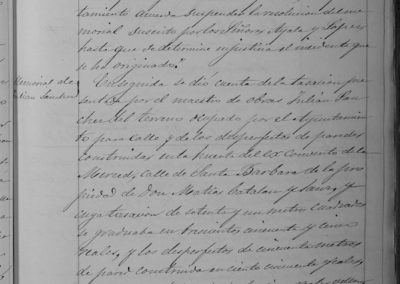 tamiento acuerda suspender la resolucion del me-
morial suscrito por los Señores Ayala y Lopez
hasta que se determine en justicia el incidente que
se ha originado."
Memorial de
Julian Sanchez
En seguida se dió cuenta de la tasacion pre-
sentada por el maestro de obras Julián San-
chez del terreno ocupado por el Ayuntamien-
to para calle y de los desperfectos de paredes
construidas en la huerta del ex Convento de la
Merced, calle de Santa Barbara de la pro-
piedad de Don Matias Catalan y Sanz, y
cuya tasacion de setenta y un metros cuadrados
se graduaba en trescientos cincuenta y cinco
reales, y los desperfectos de cincuenta metros
de pared construida en ciento cincuenta reales,